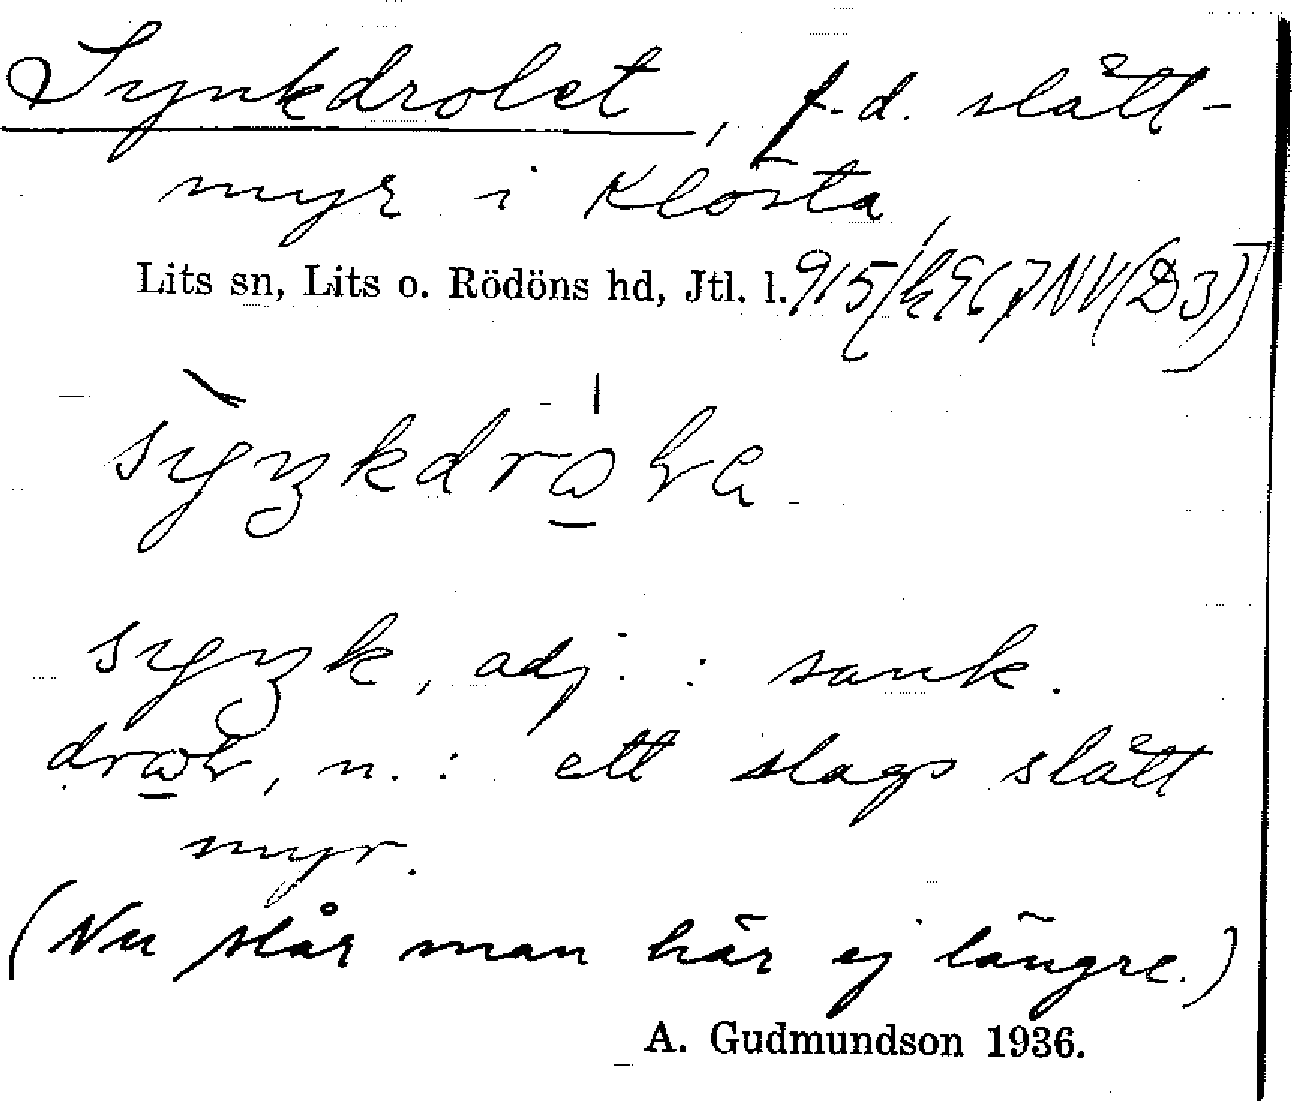 Synkdrolet, f.d. slått-
myr i Klösta
Lits sn, Lits o. Rödöns hd, Jtl. l. 915
adj. : sank.
n. : ett slags slått
myr.
(Nu slår man här ej längre.)
A. Gudmundson 1936.